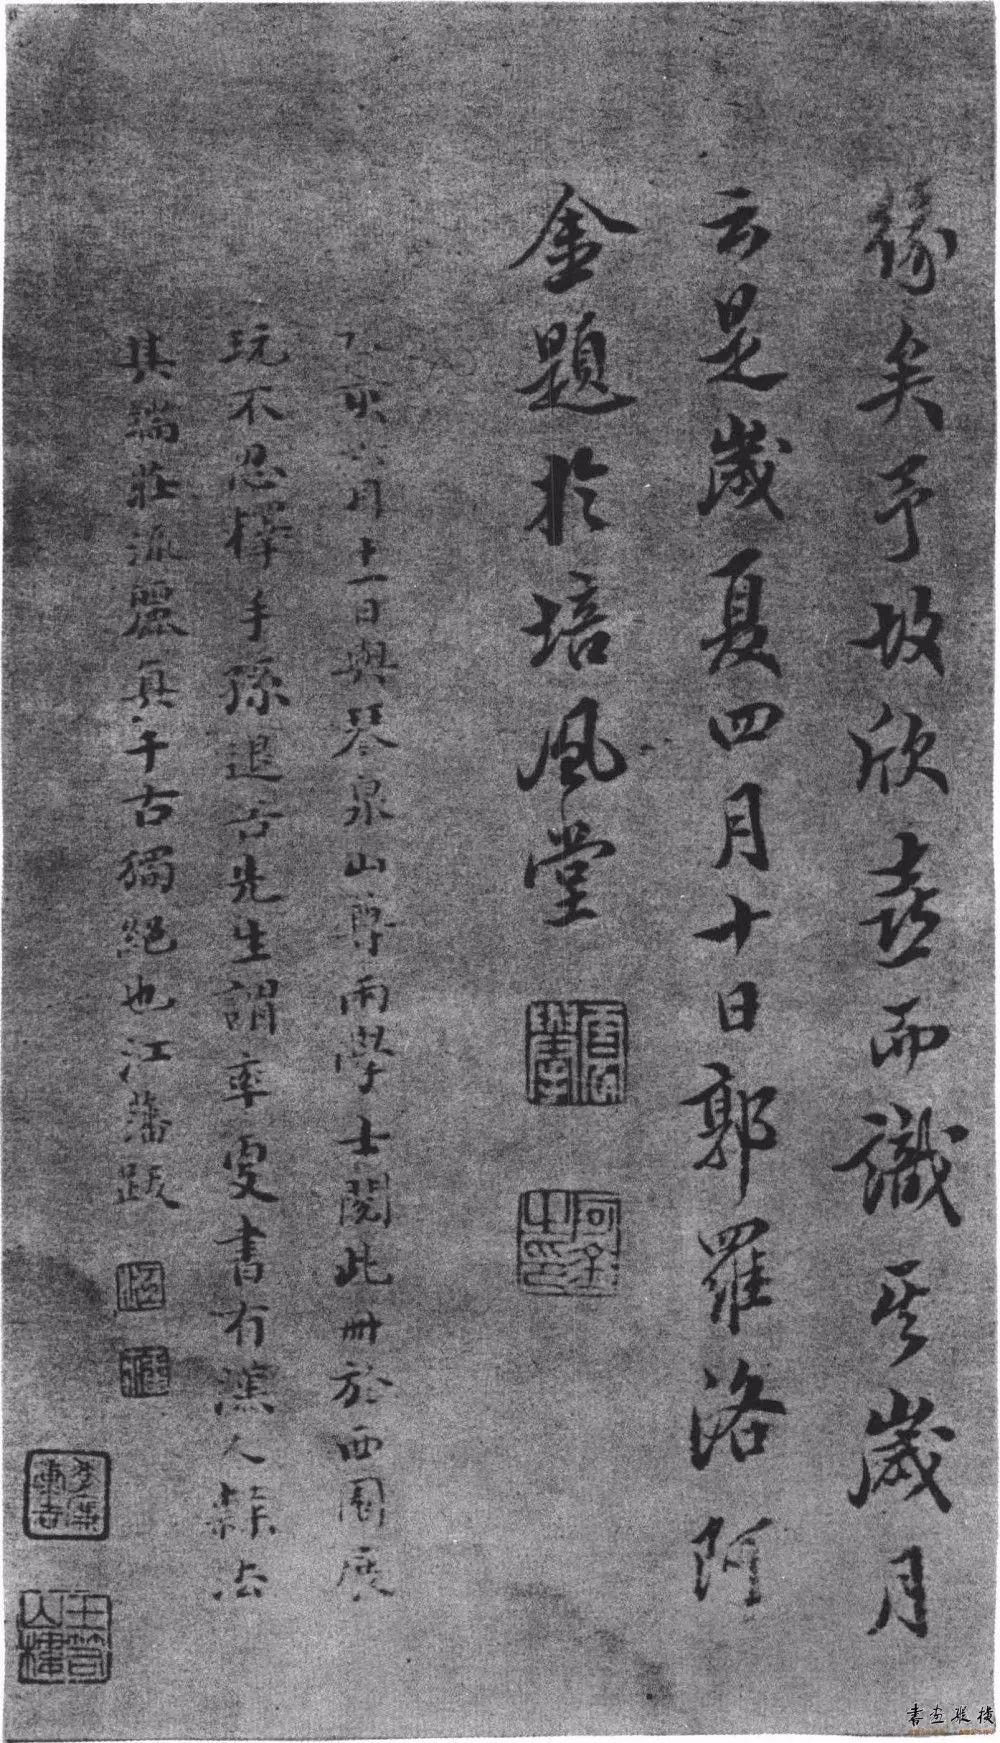 緣矣予故欣喜而識其歲月
云是歲夏四月十日郭羅洛阿
金題於培風堂
乙亥六月十一日與琴泉山尊兩學士閱此冊於西園展
玩不忍擇手孫退谷先生謂率更書有漢人隸法
其端莊流麗真千古獨絕也江藩跋
阿金之印